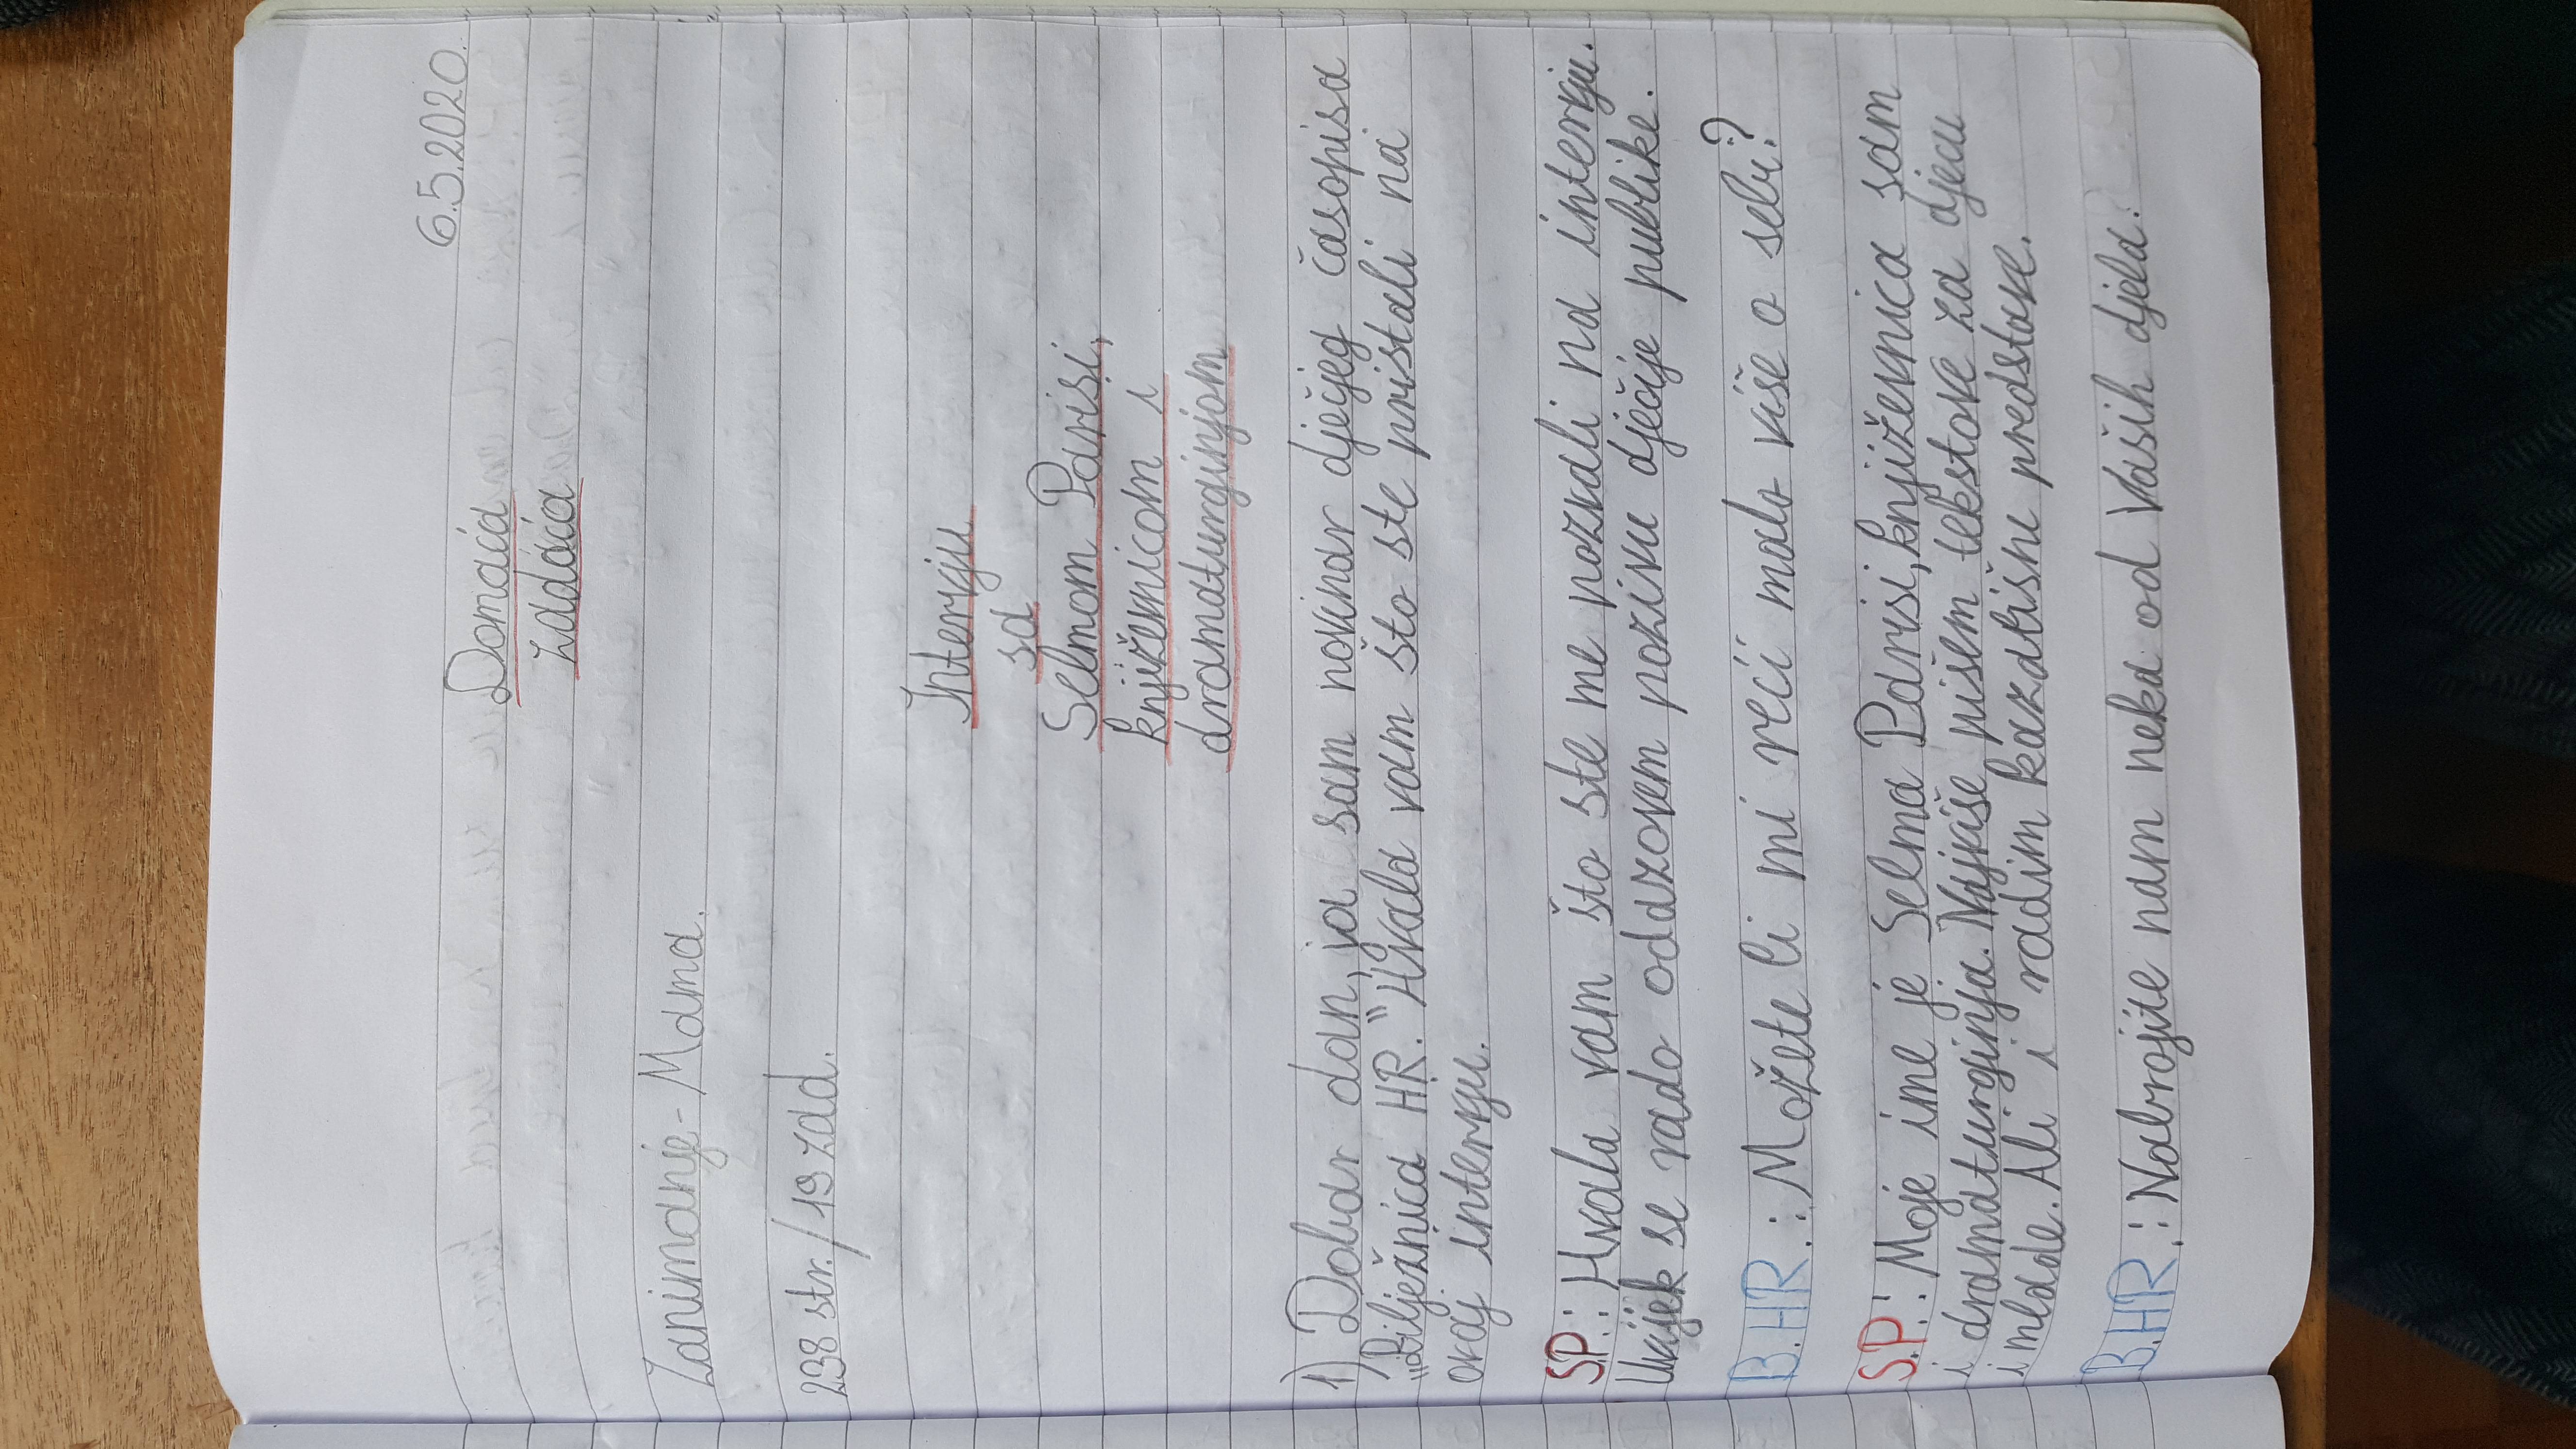 6.5.2020.
Domaća
zadaća
Zanimanje - Mama.
238 str. / 19 zad.
Intervju
sa
Selmom Parisi,
književnicom i
dramaturginjom
1) Dobar dan, ja sam novinar dječjeg časopisa
"Bilježnica HR." Hvala vam što ste pristali na
ovaj intervju.
S.P.: Hvala vam što ste me pozvali na intervju.
Uvijek se rado odazovem pozivu dječije publike.
B.HR.: Možete li mi reći malo više o sebi?
S.P.: Moje ime je Selma Parisi, književnica sam
i dramaturginja. Najviše pišem tekstove za djecu
i mlade. Ali i radim kazališne predstave.
B.HR.: Nabrojite nam neka od Vaših djela.